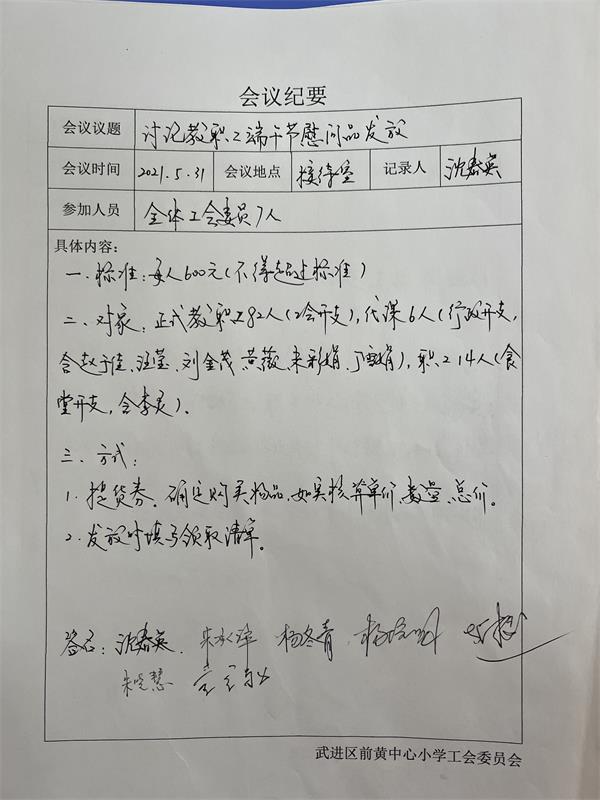 会议纪要
会议议题 讨论教职工端午节慰问品发放
会议时间 2021.5.31 会议地点 接待室 记录人 沈春英
参加人员 全体工会委员7人
具体内容：
一.标准：每人600元(不得超过标准)
二.对象：正式教职工82人(工会开支),代课6人(行政开支,
含赵于佳、汪莹、刘金茂、黄薇、朱彩娟、丁娟),职工14人(食
堂开支,含李灵).
三.方式：
1.提货券.确定购买物品,如实核算单价、数量、总价。
2.发放时填写领取清单。
签名：沈春英. 杨冬青
朱晓慧
武进区前黄中心小学工会委员会